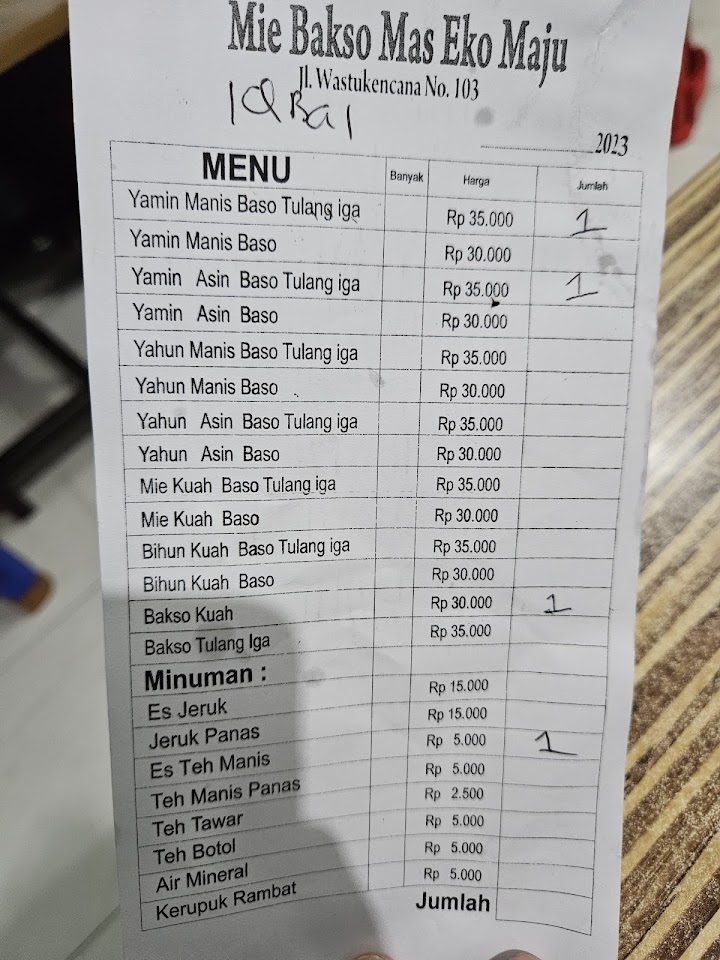 Mie Bakso Mas Eko Maju
Jl. Wastukencana No. 103
IQBal
..............................2023
MENU Banyak Harga Jumlah
Yamin Manis Baso Tulang iga Rp 35.000 1
Yamin Manis Baso Rp 30.000
Yamin Asin Baso Tulang iga Rp 35.000 1
Yamin Asin Baso Rp 30.000
Yahun Manis Baso Tulang iga Rp 35.000
Yahun Manis Baso Rp 30.000
Yahun Asin Baso Tulang iga Rp 35.000
Yahun Asin Baso Rp 30.000
Mie Kuah Baso Tulang iga Rp 35.000
Mie Kuah Baso Rp 30.000
Bihun Kuah Baso Tulang iga Rp 35.000
Bihun Kuah Baso Rp 30.000
Bakso Kuah Rp 30.000 1
Bakso Tulang Iga Rp 35.000
Minuman :
Es Jeruk Rp 15.000
Jeruk Panas Rp 15.000
Es Teh Manis Rp 5.000 1
Teh Manis Panas Rp 5.000
Teh Tawar Rp 2.500
Teh Botol Rp 5.000
Air Mineral Rp 5.000
Kerupuk Rambat Rp 5.000
Jumlah